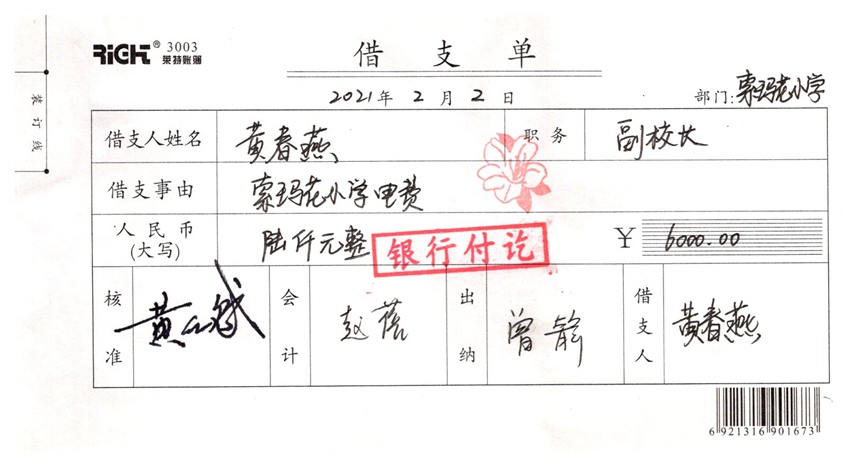 RiGHT® 3003
莱特账簿
借支单
2021年 2月 2日
部门:索玛花小学
装订线
借支人姓名 黄春燕 职务 副校长
借支事由 索玛花小学电费
人民币(大写) 陆仟元整 ¥ 6000.00
银行付讫
核准 会计 赵蓓 出纳 曾静 借支人 黄春燕
6 921316 901673